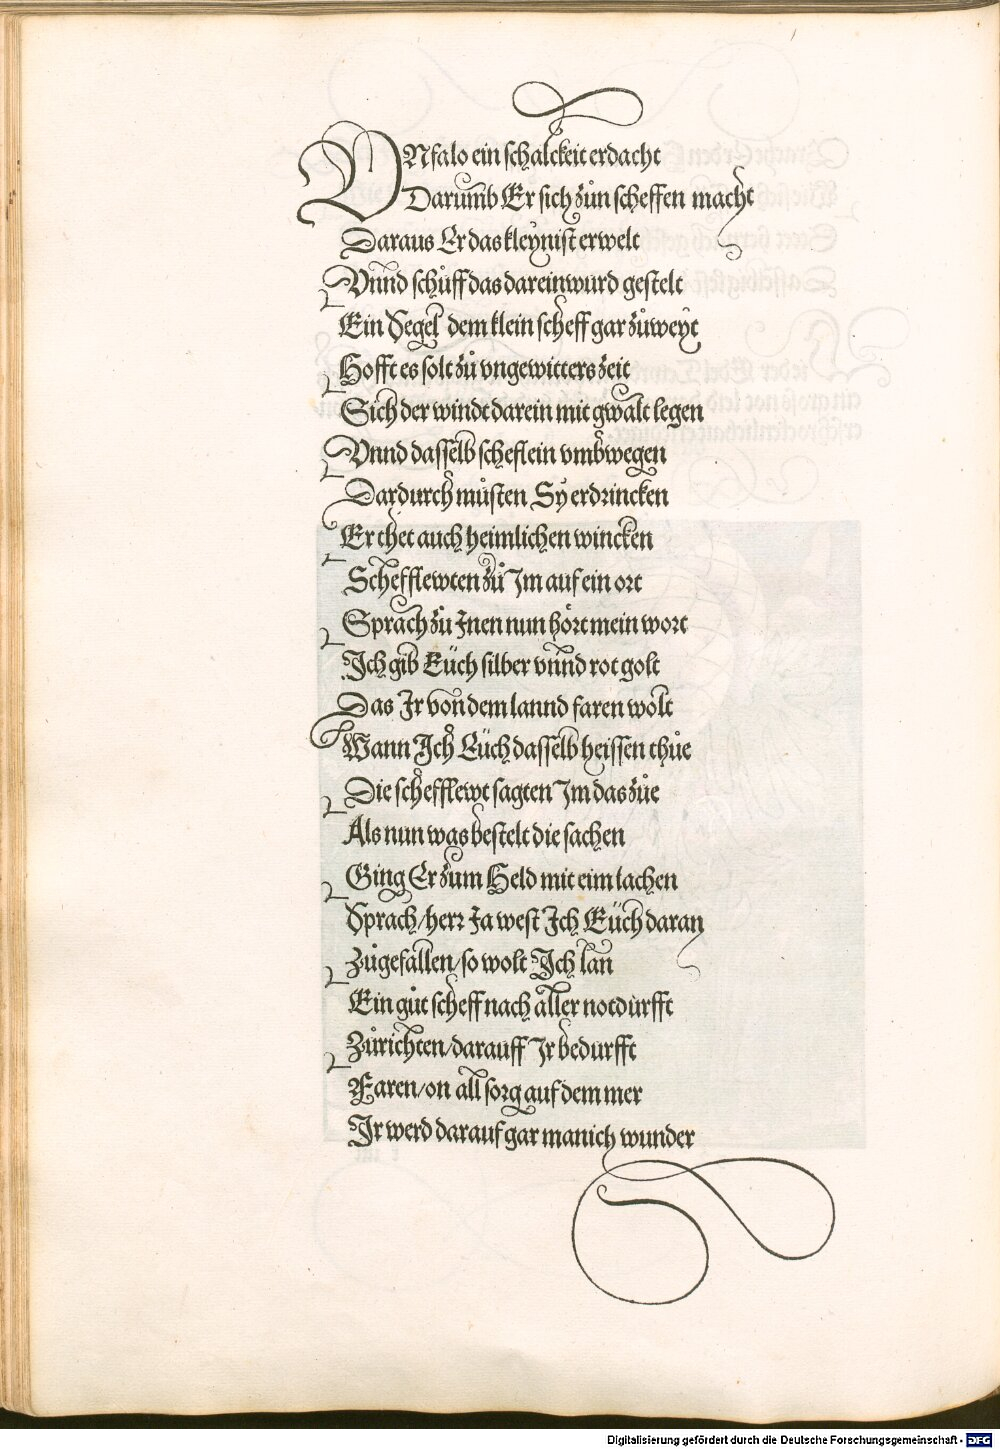 VNfalo ein schalckeit erdacht
Darumb Er sich zůn scheffen macht
Daraus Er das kleynist erwelt
Vnnd schůff das darein wurd gestelt
Ein Segel dem klein scheff gar zůweyt
Hofft es solt zů vngewitters zeit
Sich der windt darein mit gwalt legen
Vnnd dasselb scheflein vmbwegen
Dardurch můsten Sy erdrincken
Er thet auch heimlichen wincken
Schefflewten zů Im auf ein ort
Sprach zů Inen nun hört mein wort
Ich gib Eüch silber vnnd rot golt
Das Ir von dem lannd faren wölt
Wann Ich Eüch dasselb heissen thůe
Die schefflewt sagten Im das zůe
Als nun was bestelt die sachen
Ging Er zum Held mit eim lachen
Sprach/herr Ja west Ich Eüch daran
Zůgefallen/so wolt Ich lan
Ein gůt scheff nach aller notdurfft
Zůrichten/darauff Ir bedurfft
Faren/on all sorg auf dem mer
Ir werd darauf gar manich wunder
Digitalisierung gefördert durch die Deutsche Forschungsgemeinschaft - DFG